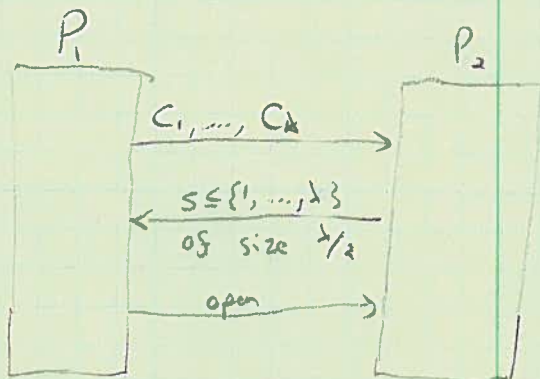 P₁ P₂
C₁, ..., Cλ
S ⊆ {1, ..., λ}
of size λ/2
open